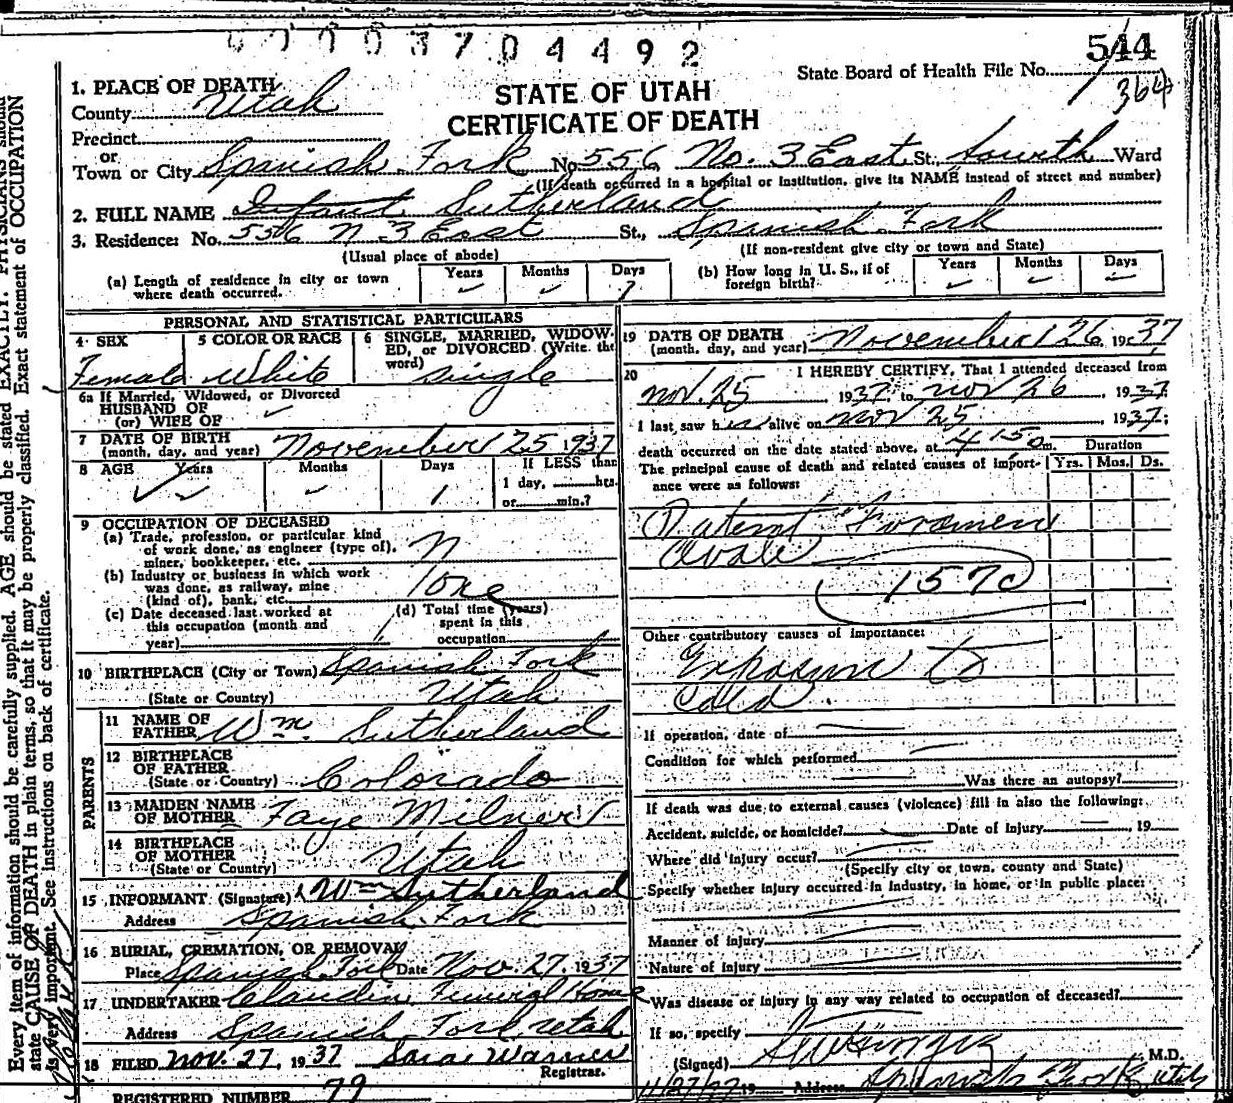 0 0 0 0 3 7 0 4 4 9 2
544
State Board of Health File No.
364
STATE OF UTAH
CERTIFICATE OF DEATH
1. PLACE OF DEATH
County Utah
Precinct
or
Town or City Spanish Fork No. 556 No. 3 East St., Fourth Ward
(If death occurred in a hospital or institution, give its NAME instead of street and number)
2. FULL NAME Infant Sutherland
3. Residence: No. 556 N 3 East St., Spanish Fork
(Usual place of abode) (If non-resident give city or town and State)
(a) Length of residence in city or town where death occurred. Years Months Days 1
(b) How long in U. S., if of foreign birth? Years Months Days
PERSONAL AND STATISTICAL PARTICULARS
4 SEX Female
5 COLOR OR RACE White
6 SINGLE, MARRIED, WIDOWED, or DIVORCED (Write the word) Single
6a If Married, Widowed, or Divorced
HUSBAND OF
(or) WIFE OF
7 DATE OF BIRTH
(month, day, and year) November 25 1937
8 AGE Years Months Days 1
If LESS than
1 day, hrs.
or min.?
9 OCCUPATION OF DECEASED
(a) Trade, profession, or particular kind
of work done, as engineer (type of),
miner, bookkeeper, etc. N
(b) Industry or business in which work
was done, as railway, mine
(kind of), bank, etc. one
(c) Date deceased last worked at
this occupation (month and
year)
(d) Total time (years)
spent in this
occupation
10 BIRTHPLACE (City or Town) Spanish Fork
(State or Country) Utah
PARENTS
11 NAME OF
FATHER Wm. Sutherland
12 BIRTHPLACE
OF FATHER
(State or Country) Colorado
13 MAIDEN NAME
OF MOTHER Faye Milner
14 BIRTHPLACE
OF MOTHER
(State or Country) Utah
15 INFORMANT (Signature) Wm Sutherland
Address Spanish Fork
16 BURIAL, CREMATION, OR REMOVAL
Place Spanish Fork Date Nov. 27, 1937
17 UNDERTAKER Claudin Funeral Home
Address Spanish Fork Utah
18 FILED Nov. 27, 1937 Sarai Warner
Registrar.
REGISTERED NUMBER 79
19 DATE OF DEATH
(month, day, and year) November 26, 1937
20 I HEREBY CERTIFY, That I attended deceased from
Nov. 25, 1937, to Nov 26, 1937
I last saw h alive on Nov 25, 1937;
death occurred on the date stated above, at m.
The principal cause of death and related causes of importance were as follows:
Duration
Yrs. Mos. Ds.
Patent Foramen
Ovale
157c
Other contributory causes of importance:
Exposure to
Cold
If operation, date of
Condition for which performed
Was there an autopsy?
If death was due to external causes (violence) fill in also the following:
Accident, suicide, or homicide? Date of injury , 19
Where did injury occur?
(Specify city or town, county and State)
Specify whether injury occurred in industry, in home, or in public place:
Manner of injury
Nature of injury
Was disease or injury in any way related to occupation of deceased?
If so, specify
(Signed) M.D.
11/27/37 19 Address Spanish Fork Utah
Every item of information should be carefully supplied. AGE should be stated EXACTLY. PHYSICIANS should
state CAUSE OF DEATH in plain terms, so that it may be properly classified. Exact statement of OCCUPATION
is very important. See instructions on back of certificate.